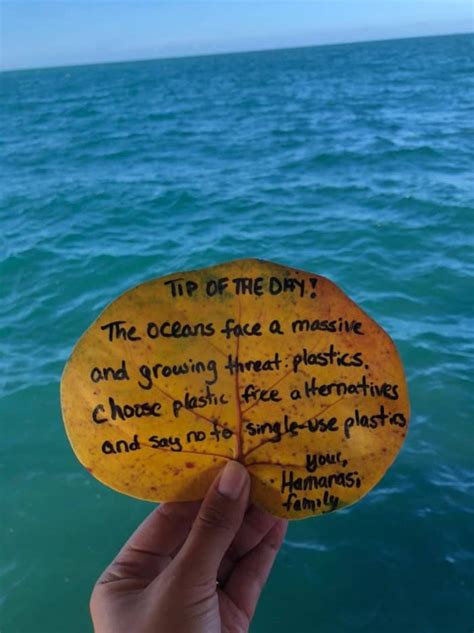 TIP OF THE DAY!
The oceans face a massive
and growing threat plastics.
Choose plastic free alternatives
and say no to single-use plastics
your,
Hamanasi
family